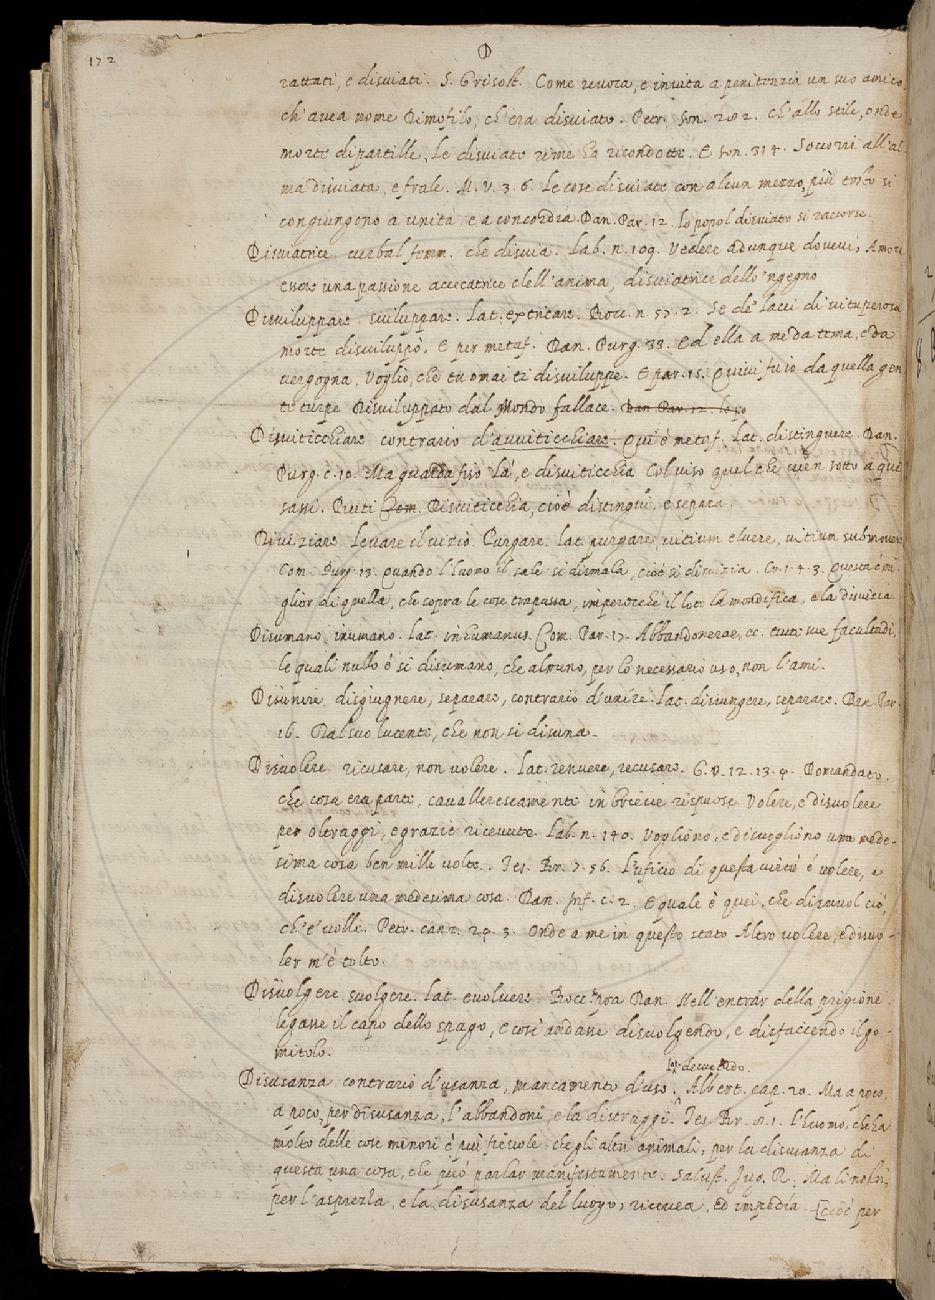 172
D
rattati, e disuiati. S. Grisost. Come reuoca, e inuita a penitenzia un suo amico,
ch'auea nome Dimofilo, ch'era disuiato. Petr. son. 282. ch'allo stile, onde
morte dipartille, Le disuiate rime ha ricondotte. E son. 314. Soccorri all'al
ma disuiata, e frale. M. V. 3. 6. Le cose disuiate con alcun mezzo, più tosto si
congiungono a unità e a concordia Dan. Par. 12. lo popol disuiato si raccorse.
Disuiatrice verbal femm. che disuia. Lab. n. 109. Vedere adunque doueui, Amore
essere una passione accecatrice dell'anima, disuiatrice dello 'ngegno
Disuiluppare suiluppare. Lat. extricare. Bocc. n. 57. 2. Se de' lacci di vituperosa
morte disuiluppò. E per metaf. Dan. Purg. 33. Ed ella a me da tema, e da
uergogna, Voglio, che tu omai ti disuiluppe. E par. 15. Quiui fu io da quella gen
te turpe Disuiluppato dal Mondo fallace. Dan. Par. 12. lo po
Disuiticchiare contrario d'auuiticchiare. Qui è metaf. Lat. distinguere. Dan.
Purg. c. 10. Ma guarda fiso Là, e disuiticchia Col uiso quel che uien sotto a que
sassi. Buti Com. Disuiticchia, cioè distingui, e separa.
Diuiziare. Leuare il uizio. Purgare. Lat. purgare, uitium eluere, uitium submouere
Com. Purg. 13. Quando l'huomo il sale si dismala, cioè si disuizia. Cr. 1. 4. 3. Questa è mi
glior di quella, che sopra le cose trapassa, imperocchè il loto la mondifica, e la disuizia.
Disumano, inumano. Lat. inhumanus. Com. Par. 17. Abbandonerae, ec. tutte sue facultadi,
le quali nullo è sì disumano, che almeno, per lo necessario uso, non l'ami.
Disunire disgiugnere, separare, contrario d'unire. Lat. disiungere, separare. Dan. Par.
16. Dal suo lucente, che non si disuna.
Disuolere ricusare, non uolere. Lat. renuere, recusare. G. V. 12. 13. 9. Domandato,
che cosa era parte, cavallerescamente in brieue rispuose. Volere, e disuolere
per oltraggi, e grazie riceuute. Lab. n. 140. Vogliono, e disuogliono una mede-
sima cosa ben mille uolte. Tes. Br. 7. 56. L'uficio di questa uertù è uolere, e
disuolere una medesima cosa. Dan. Inf. c. 2. E quale è quei, che disuuol ciò,
ch'e' uolle. Petr. canz. 29. 3. Onde a me in questo stato Altro uolere, e disuo-
ler m'è tolto.
Disuolgere suolgere. Lat. euoluere. Bocc. uita Dan. Nell'entrar della prigione
legasse il capo dello spago, e così andasse disuolgendo, e disfaccendo il go-
mitolo.
Lat. desuetudo.
Disusanza contrario d'usanza, mancamento d'uso. Albert. cap. 20. Ma a poco,
a poco, per disusanza, l'abbandoni, e la distruggi. Tes. Br. 8. 1. L'huomo, che ha
molto delle cose minori è più fieuole, che gli altri animali, per la disusanza di
questa una cosa, che può parlar manifestamente. Salust. Iug. R. Ma li nostri,
per l'asprezza, e la disusanza del luogo, riceuea, ed impedia [cioè per